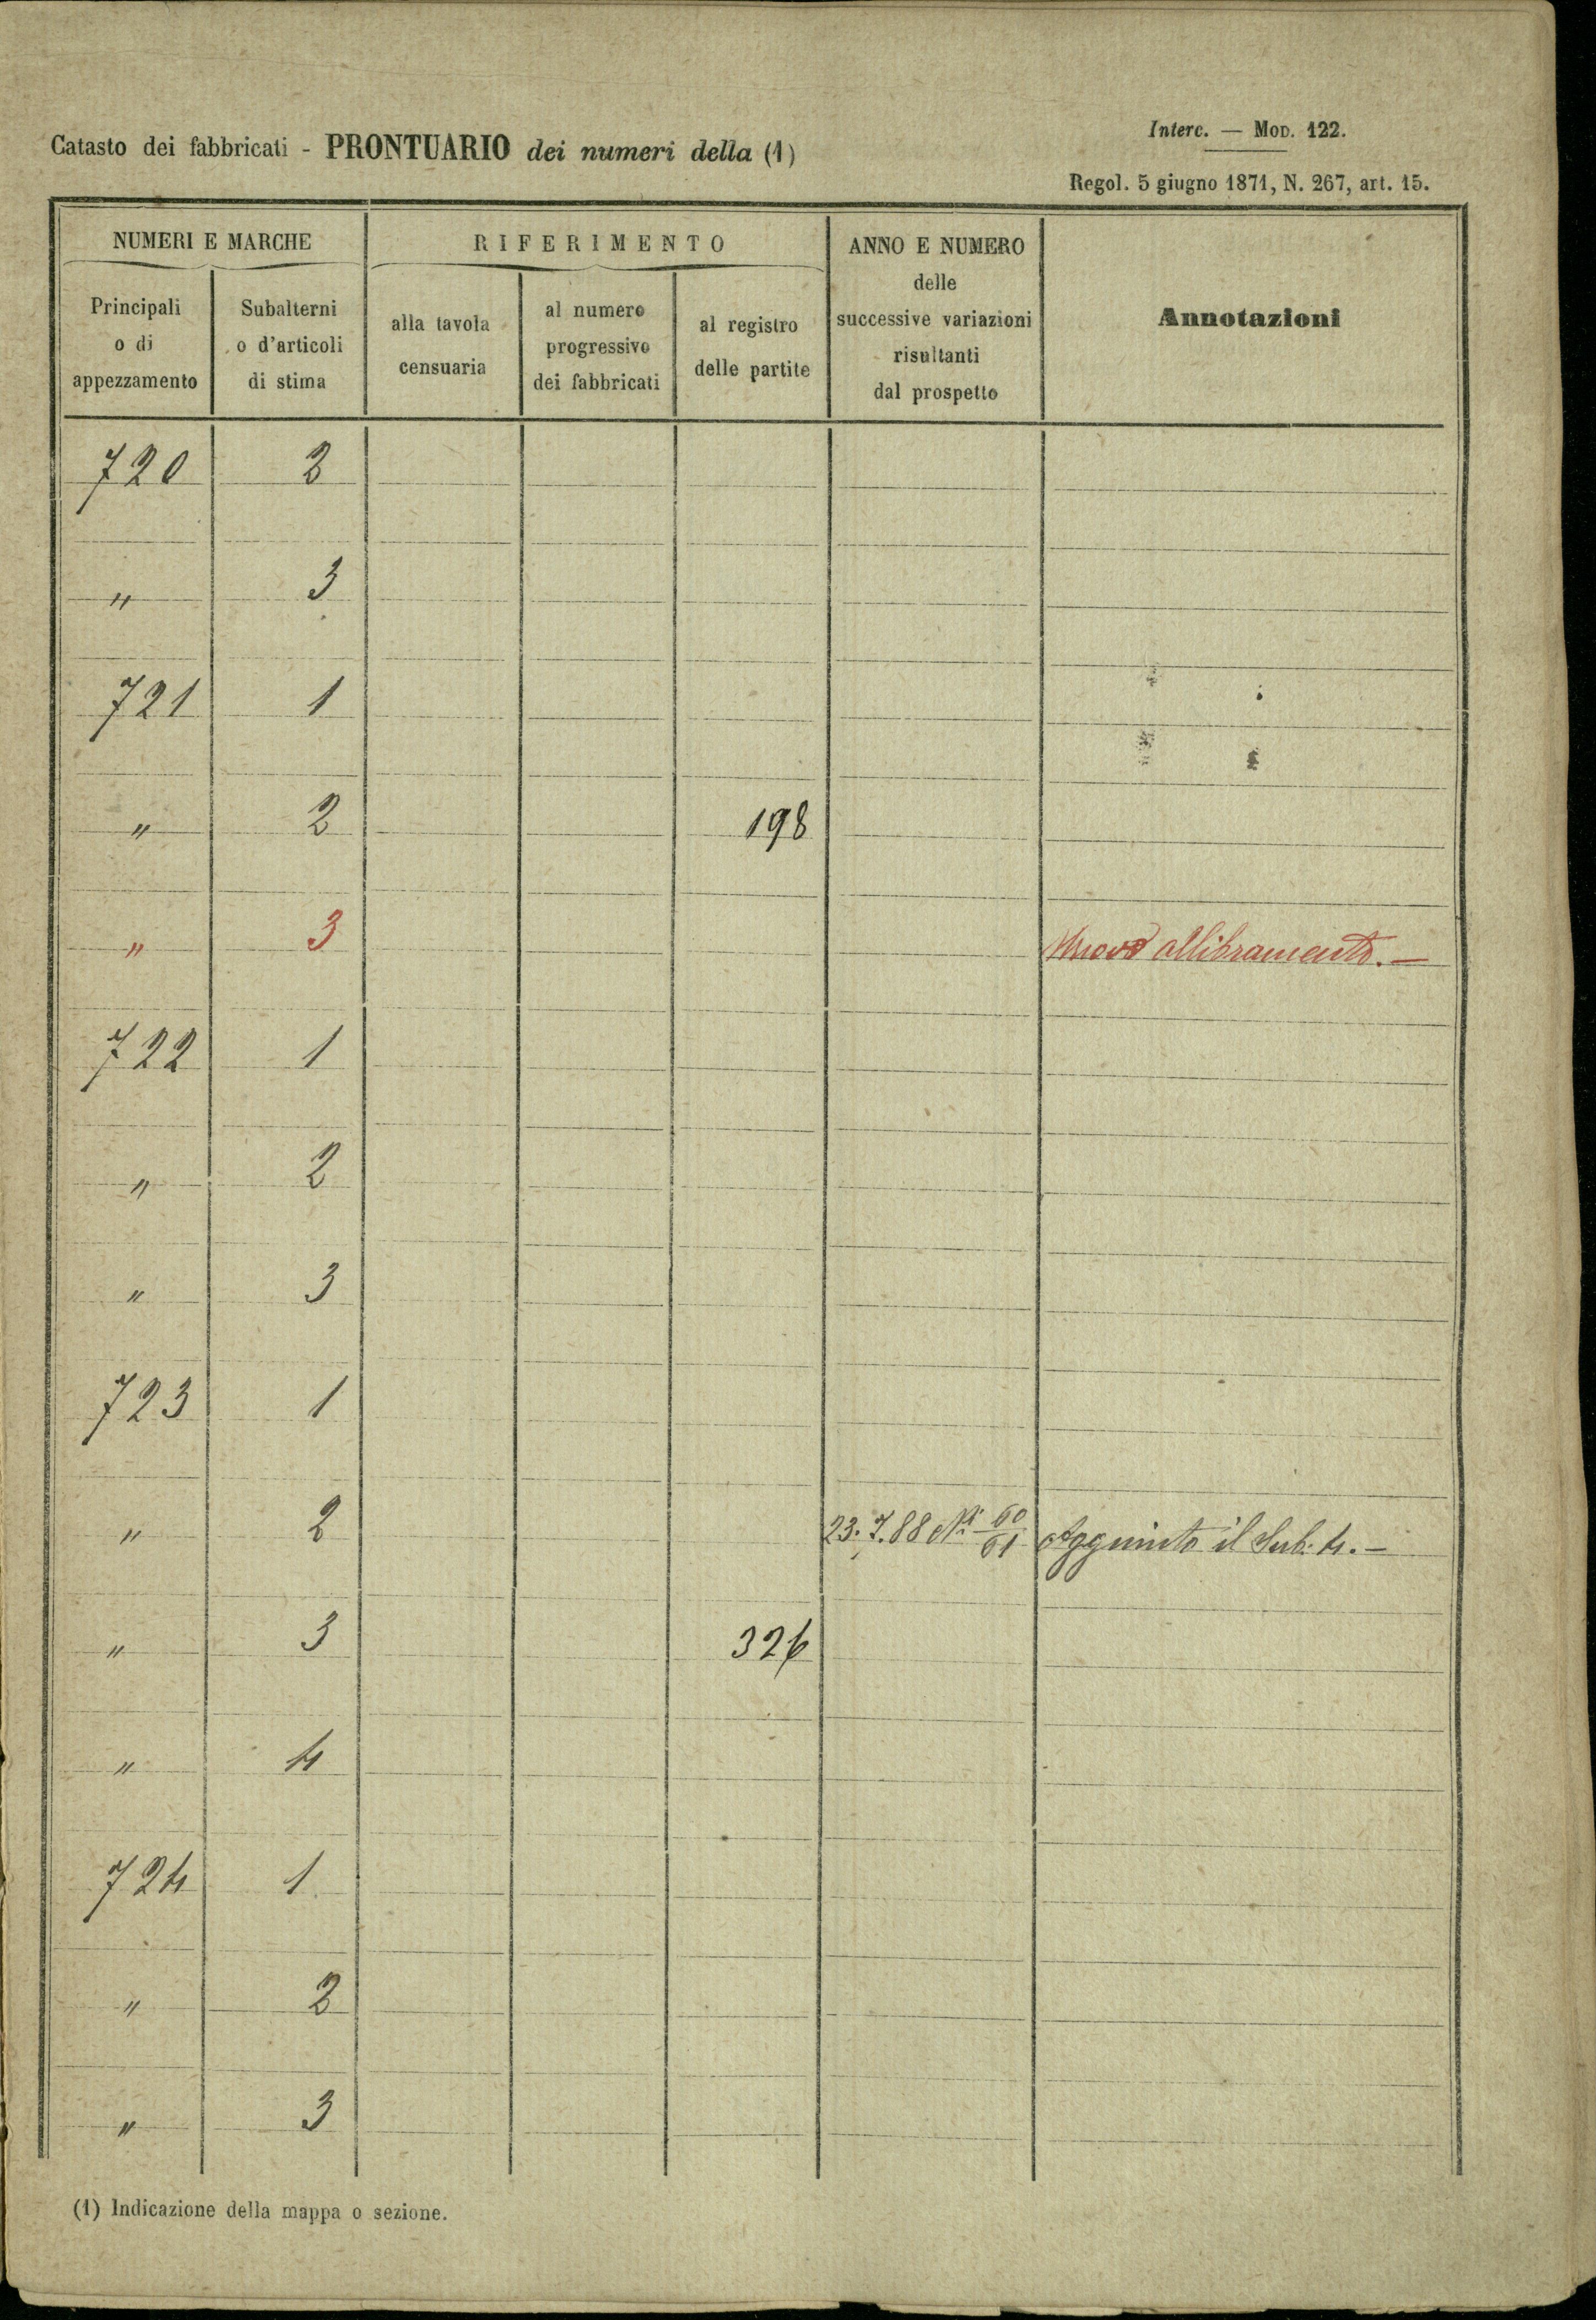 Catasto dei fabbricati - PRONTUARIO dei numeri della (1)
Interc. — Mod. 122.
Regol. 5 giugno 1871, N. 267, art. 15.
NUMERI E MARCHE
RIFERIMENTO
ANNO E NUMERO
delle
successive variazioni
risultanti
dal prospetto
Annotazioni
Principali
o di
appezzamento
Subalterni
o d'articoli
di stima
alla tavola
censuaria
al numero
progressivo
dei fabbricati
al registro
delle partite
720 2
" 3
721 1
" 2 198
" 3 Nuovo allibramento. —
722 1
" 2
" 3
723 1
" 2 23. 7. 88 Ni 60/61 Aggiunto il Sub. 4. —
" 3 326
" 4
724 1
" 2
" 3
(1) Indicazione della mappa o sezione.